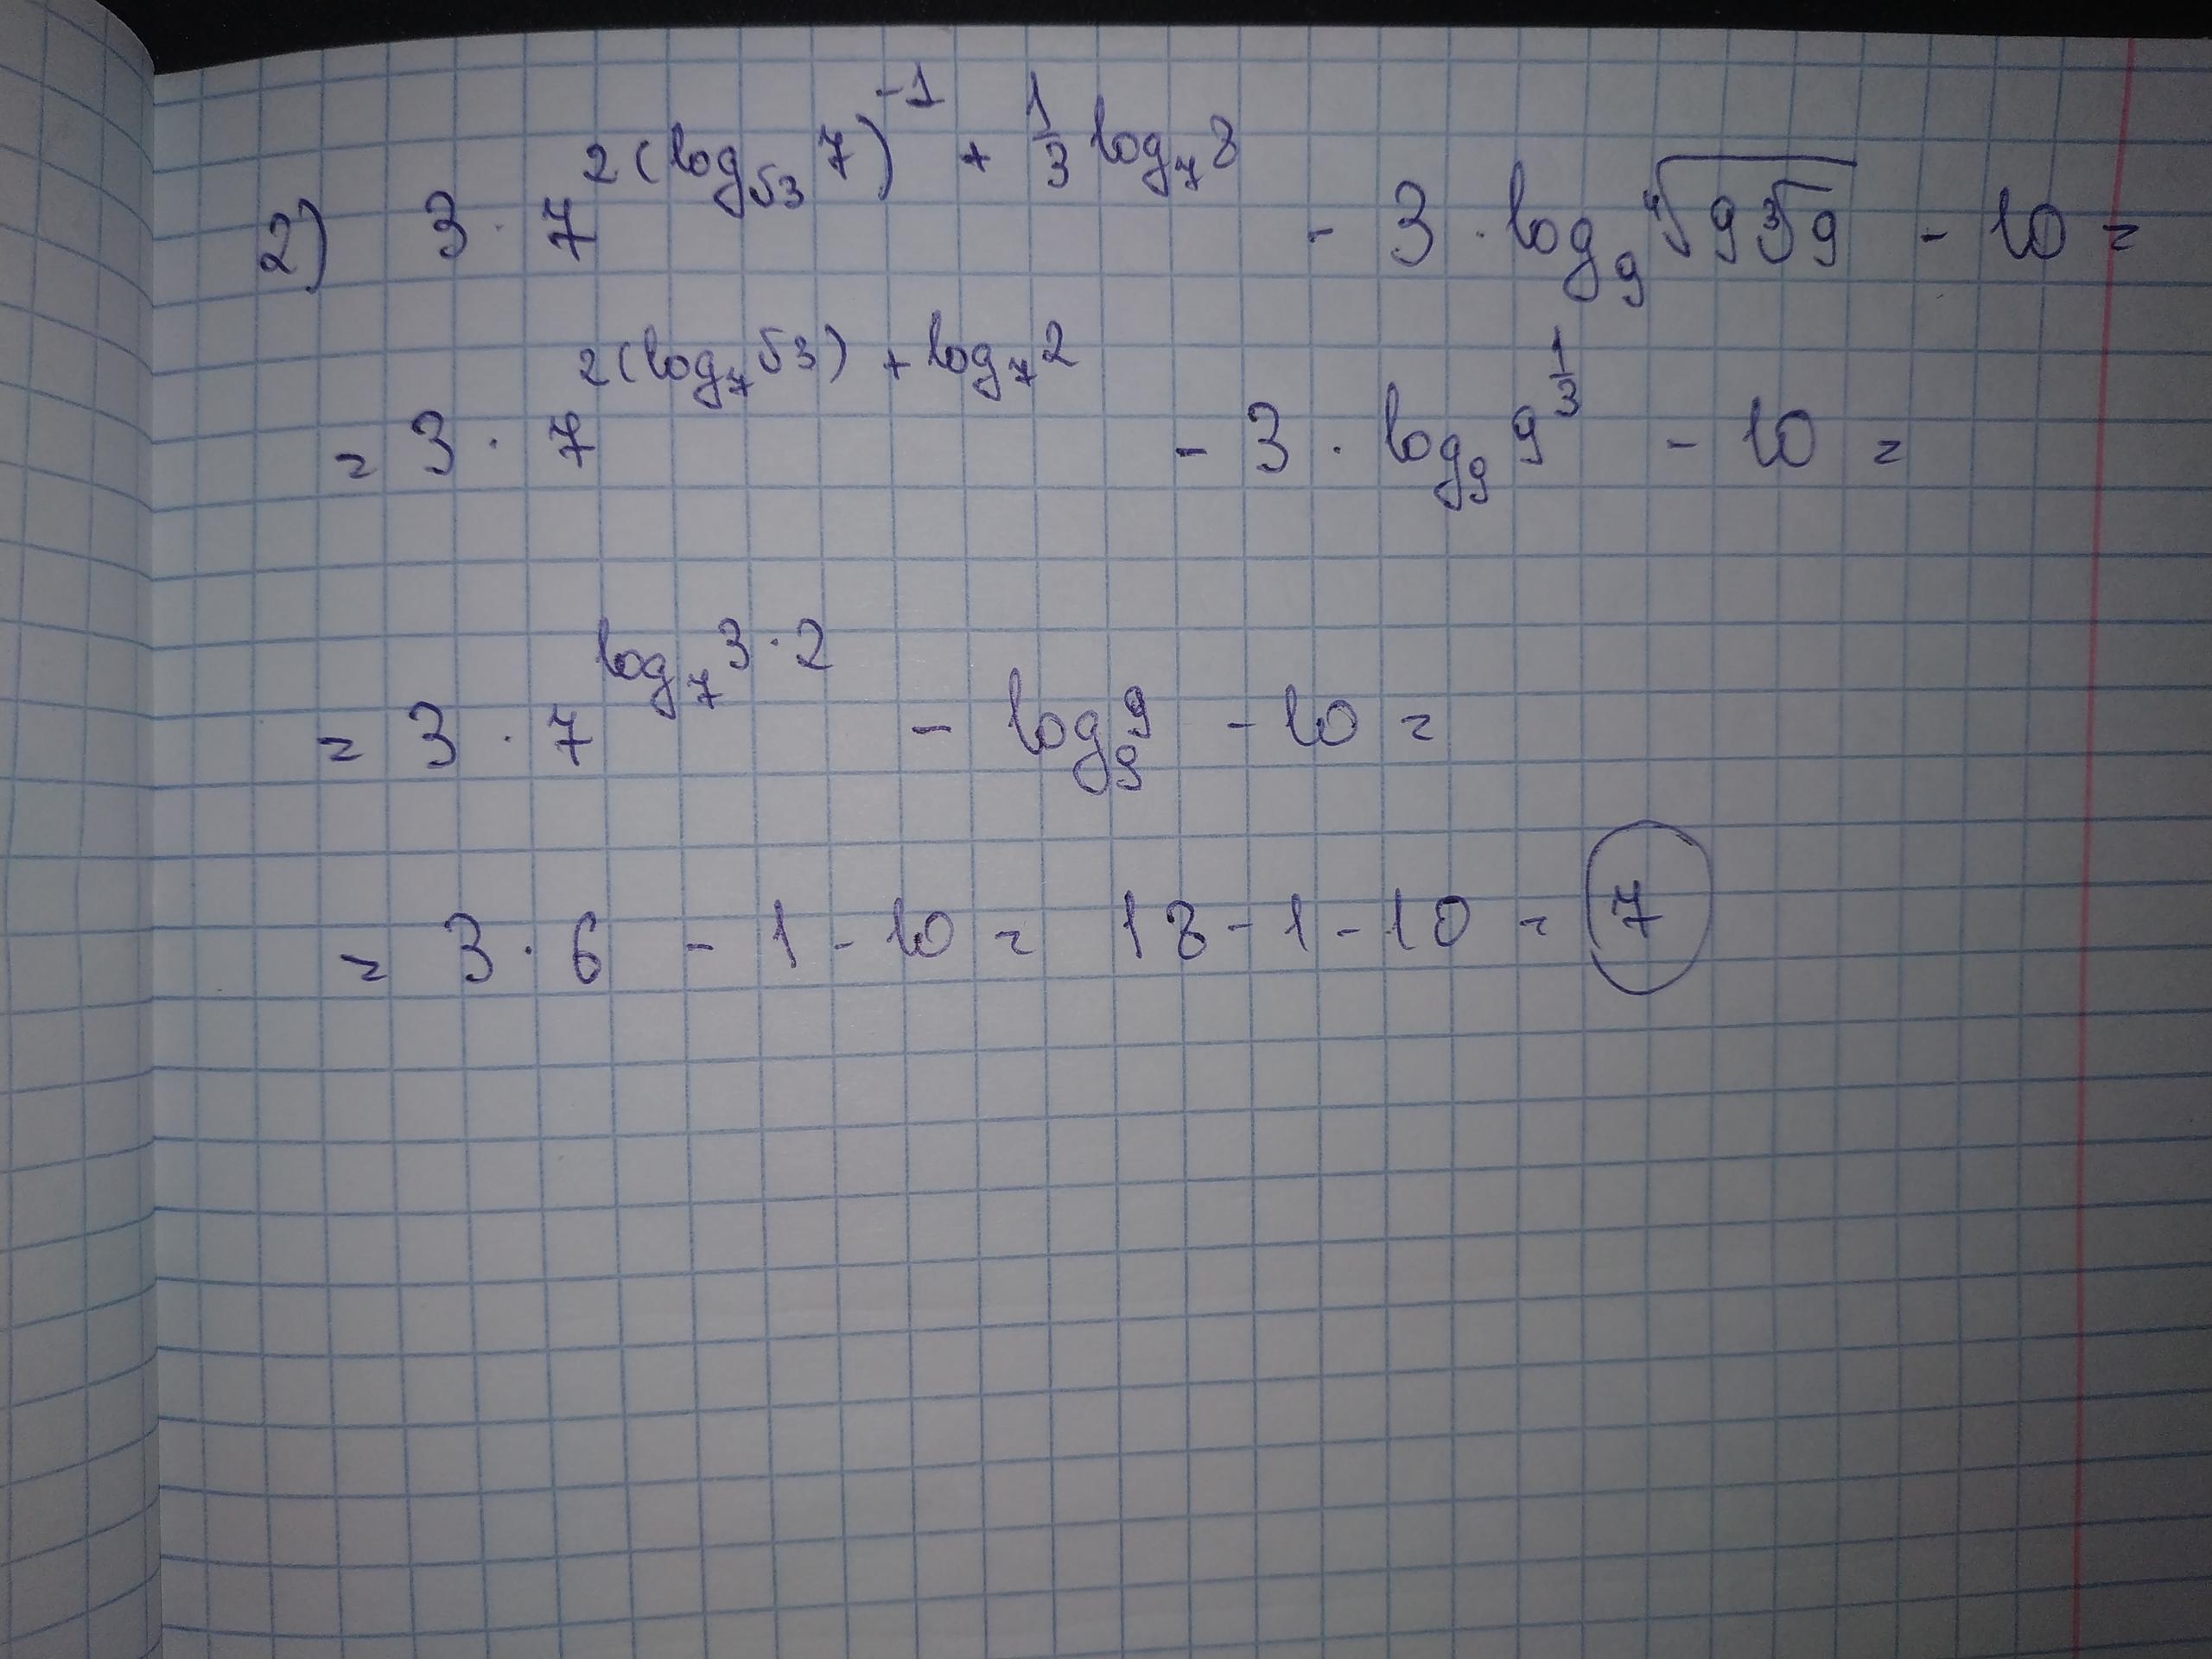 2) 3 · 7^{2(log_{√3} 7)^{-1} + \frac{1}{3} log_7 8} - 3 · log_9 \sqrt[4]{9\sqrt[3]{9}} - 10 =
= 3 · 7^{2(log_7 √3) + log_7 2} - 3 · log_9 9^{\frac{1}{3}} - 10 =
= 3 · 7^{log_7 3·2} - log_9 9 - 10 =
= 3 · 6 - 1 - 10 = 18 - 1 - 10 = 7